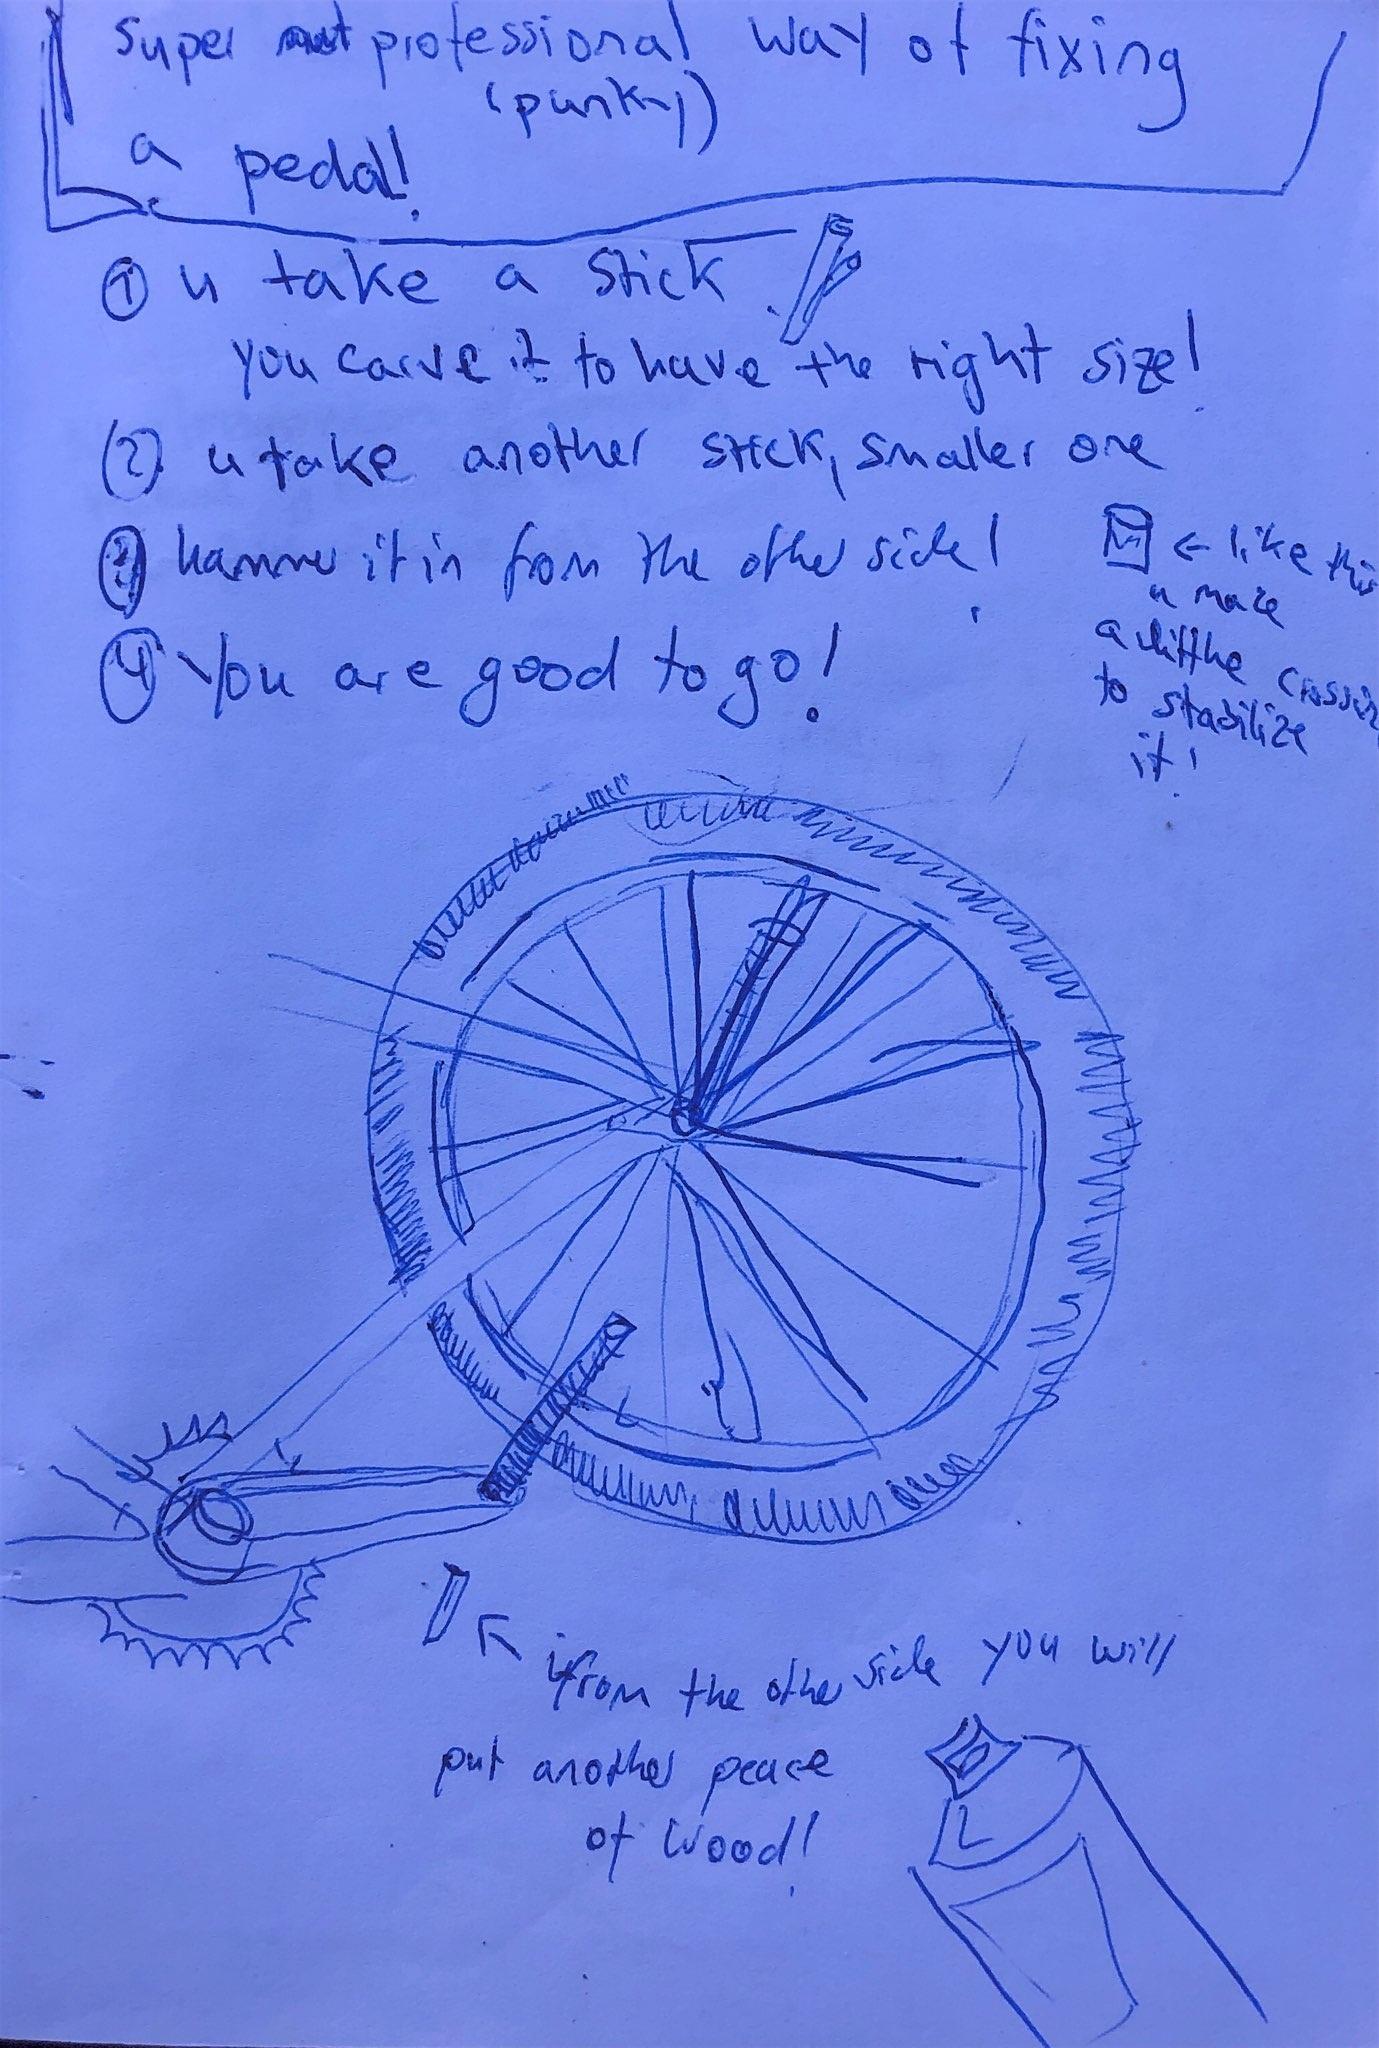 super professional way of fixing
(punky)
a pedal!
① u take a stick
you carve it to have the right size!
② u take another stick, smaller one
③ hammer it in from the other side!
④ You are good to go!
← like this
u make
a litthe
to stabilize
it!
from the other side you will
put another peace
of wood!